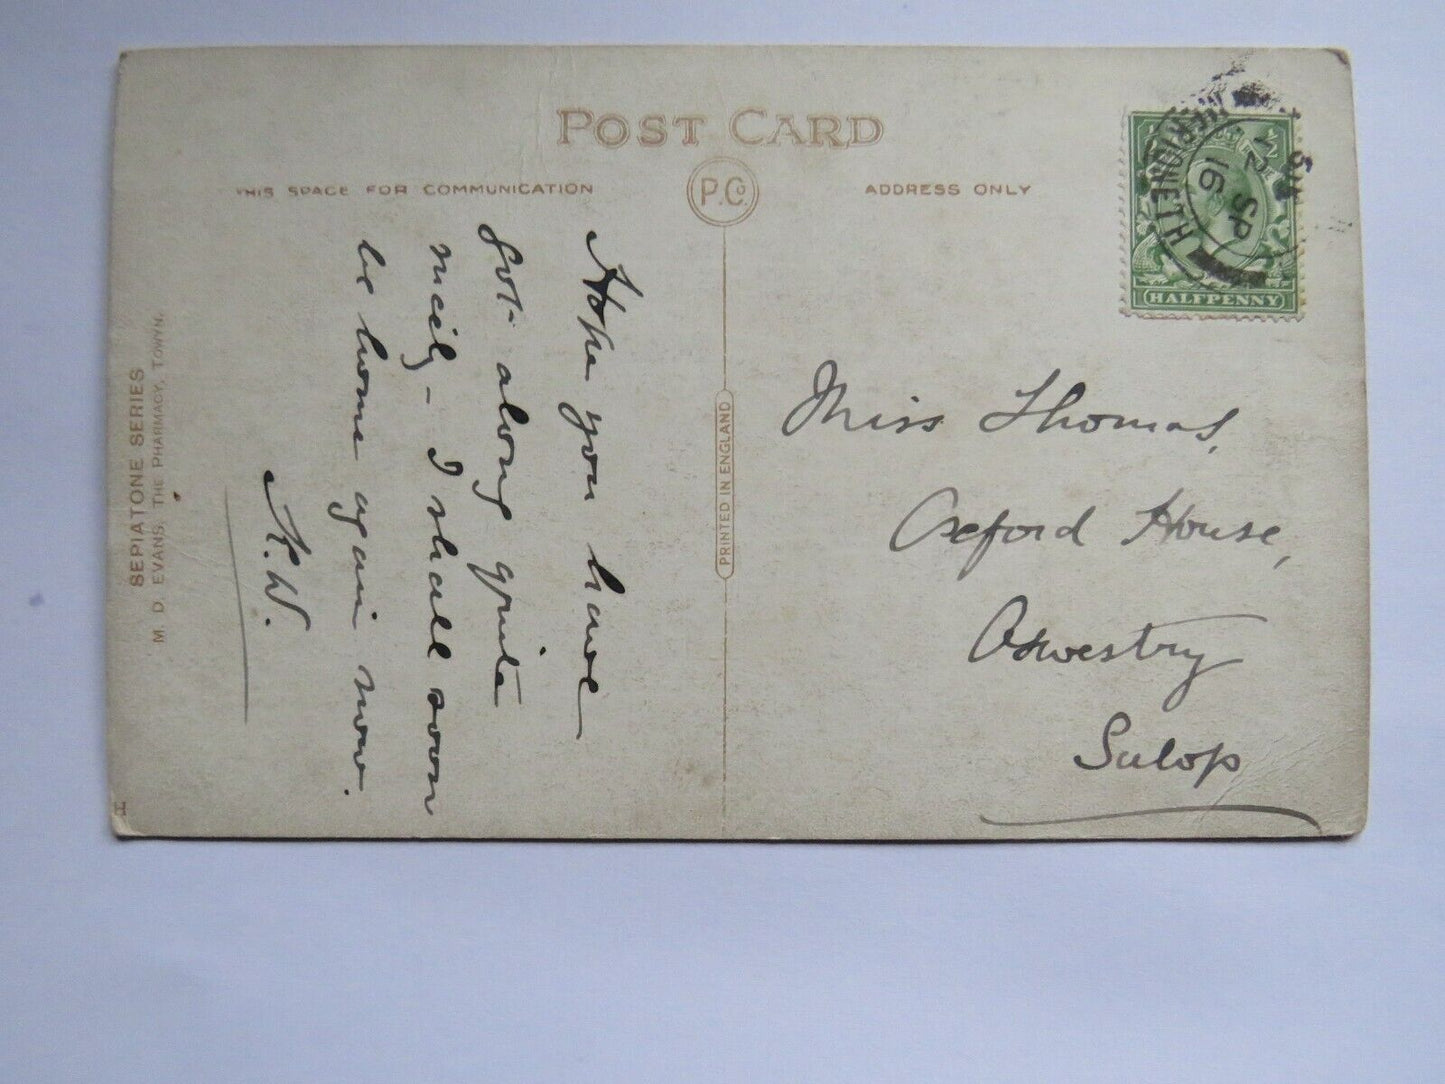 POST CARD
THIS SPACE FOR COMMUNICATION
P.Co.
ADDRESS ONLY
Hope you have
got along quite
nicely - I shall soon
be home again now.
K.W.
PRINTED IN ENGLAND
Miss Thomas,
Oxford House,
Oswestry
Salop
HALFPENNY
SP
16
SEPIATONE SERIES
M. D. EVANS, THE PHARMACY, TOWYN.
H